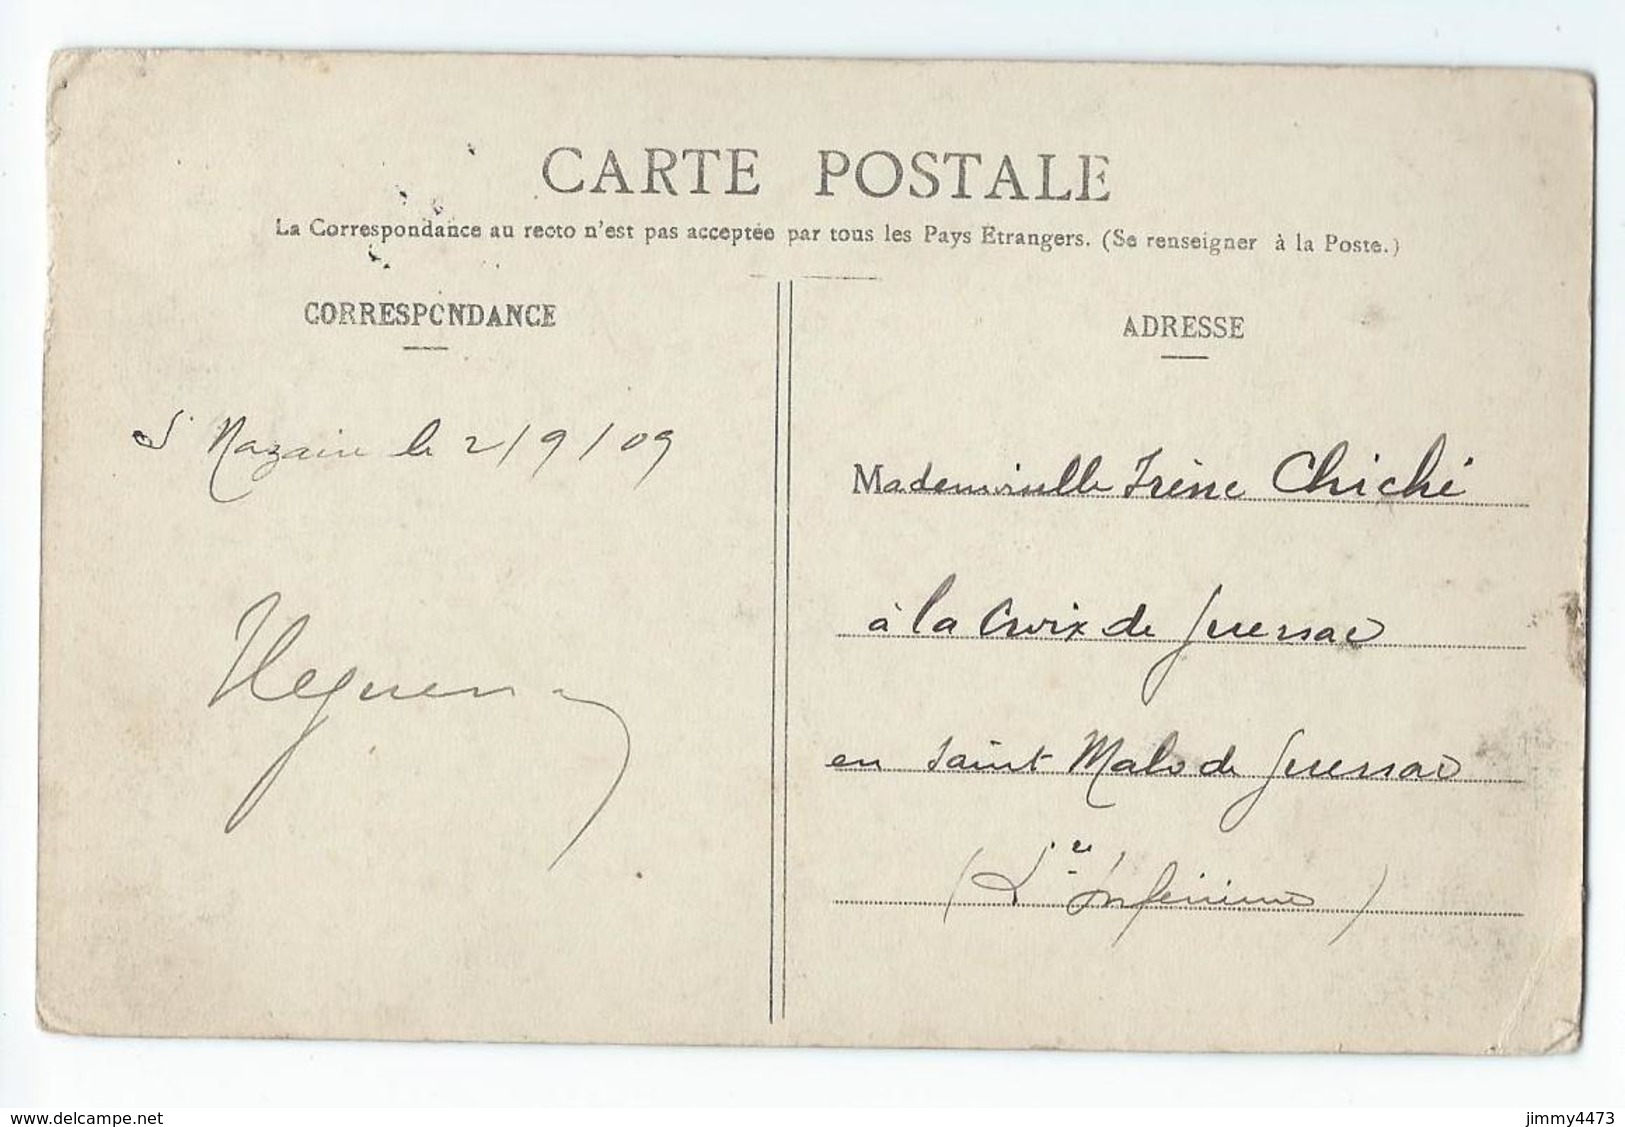 CARTE POSTALE
La Correspondance au recto n'est pas acceptée par tous les Pays Etrangers. (Se renseigner à la Poste.)
CORRESPONDANCE
ADRESSE
St Nazaire le 2/9/09
Mademoiselle Irène Chiché
à la Croix de Guersac
en Saint Malo de Guersac
(Lre Inférieure)
www.delcampe.net
jimmy4473